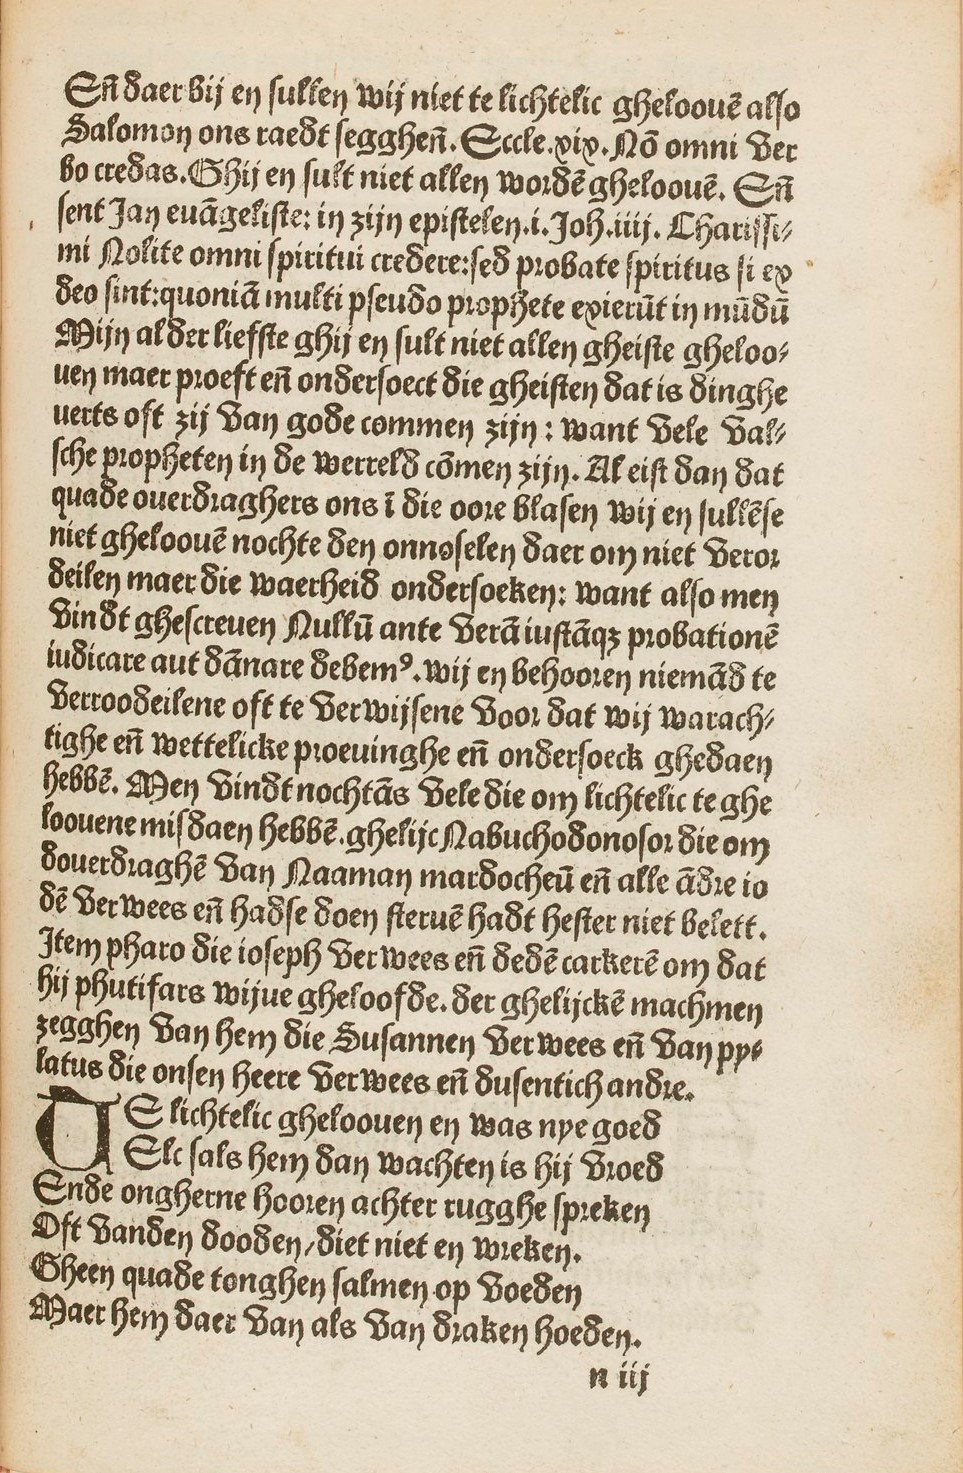 Eñ daer bij en sullen wij niet te lichtelic gheloouē also
Salomon ons raedt seggheñ. Eccle.xix. Nō omni ver
bo credas. Ghij en sult niet allen wordē gheloouē. Eñ
sent Jan euāgeliste: in zijn epistelen.i. Joh.iiij. Charissi⸗
mi Nolite omni spiritui credere: sed probate spiritus si ex
deo sint: quoniā multi pseudo prophete exierūt in mūdū
Mijn alder liefste ghij en sult niet allen gheiste gheloo⸗
uen maer proeft eñ ondersoect die gheisten dat is dinghe
uerts oft zij van gode commen zijn: want vele val⸗
sche propheten in de werreld cōmen zijn. Al eist dan dat
quade ouerdraghers ons ī die oore blasen wij en sullēse
niet gheloouē nochte den onnoselen daer om niet veror
deilen maer die waerheid ondersoeken: want also men
vindt ghescreuen Nullū ante verā iustāqꝫ probationē
iudicare aut dānare debemꝰ. wij en behooren niemād te
verroodeilene oft te verwijsene voor dat wij warach⸗
tighe eñ wettelicke proeuinghe eñ ondersoeck ghedaen
hebbē. Men vindt nochtās vele die om lichtelic te ghe
loouene misdaen hebbē. ghelijc Nabuchodonosor die om
douerdraghē van Naaman mardocheū eñ alle ādre io
dē verwees eñ hadse doen steruē hadt hester niet belett.
Item pharo die ioseph verwees eñ dedē carkerē om dat
hij phutifars wijue gheloofde. der ghelijckē machmen
zegghen van hem die Susannen verwees eñ van py⸗
latus die onsen heere verwees eñ dusentich andre.
TE lichtelic gheloouen en was nye goed
Elc sals hem dan wachten is hij vroed
Ende ongherne hooren achter rugghe spreken
Oft vanden dooden/diet niet en wreken.
Gheen quade tonghen salmen op voeden
Maer hem daer van als van draken hoeden.
n iij